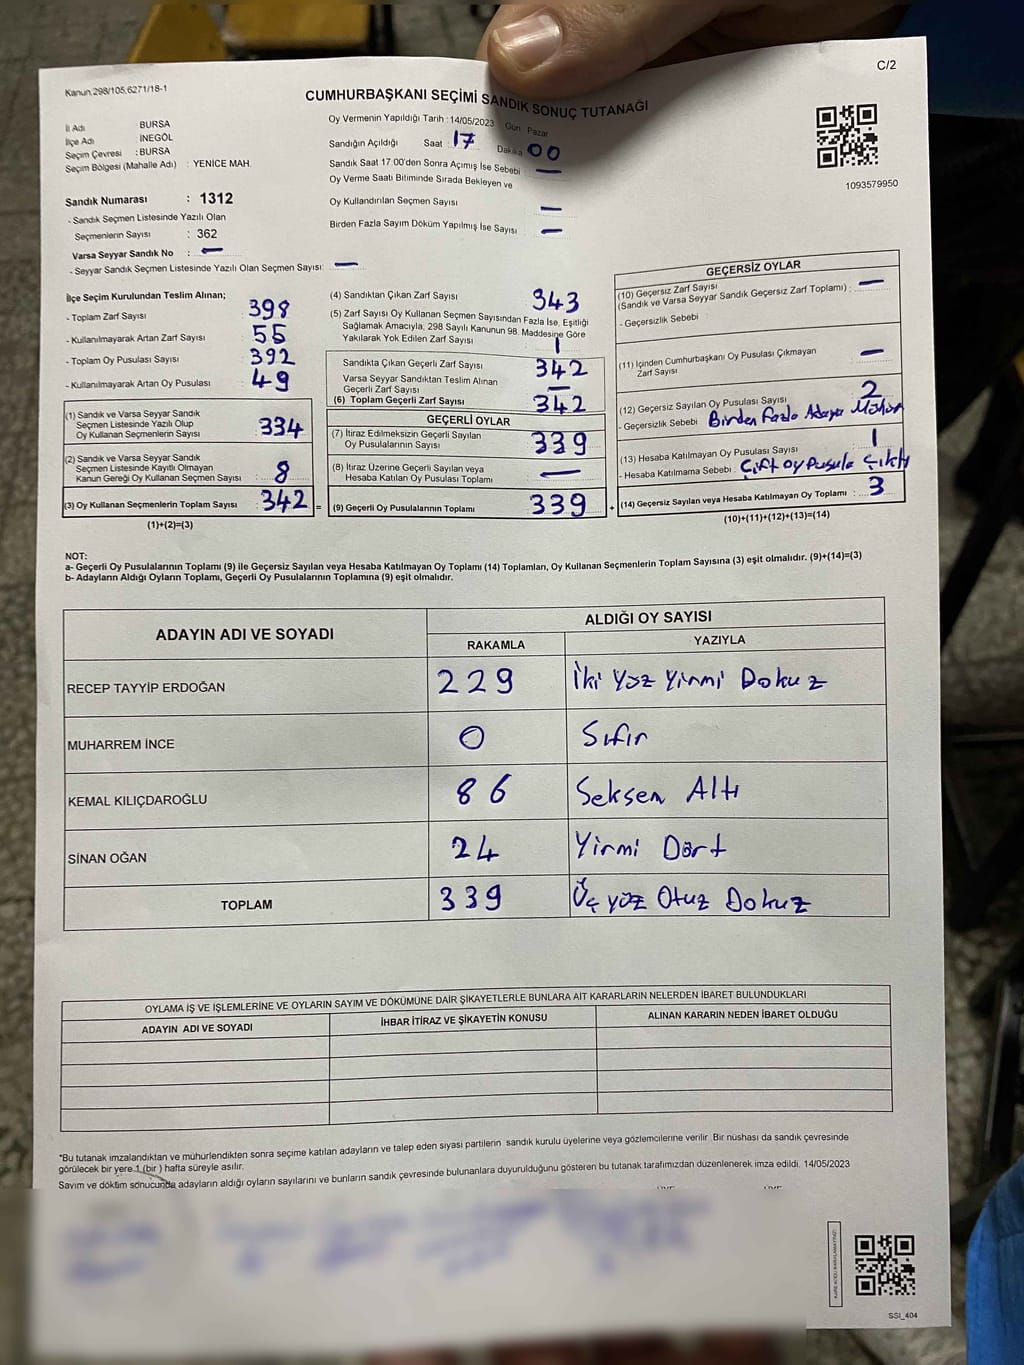 C/2
Kanun.298/105,6271/18-1
CUMHURBAŞKANI SEÇİMİ SANDIK SONUÇ TUTANAĞI
İl Adı : BURSA
İlçe Adı : İNEGÖL
Seçim Çevresi : BURSA
Seçim Bölgesi (Mahalle Adı) : YENİCE MAH.
Oy Vermenin Yapıldığı Tarih : 14/05/2023 Gün Pazar
Sandığın Açıldığı Saat : 17 Dakika 00
Sandık Saat 17.00'den Sonra Açımış İse Sebebi —
Oy Verme Saati Bitiminde Sırada Bekleyen ve
Oy Kullandırılan Seçmen Sayısı —
Birden Fazla Sayım Döküm Yapılmış İse Sayısı —
1093579950
Sandık Numarası : 1312
- Sandık Seçmen Listesinde Yazılı Olan
Seçmenlerin Sayısı : 362
Varsa Seyyar Sandık No : —
- Seyyar Sandık Seçmen Listesinde Yazılı Olan Seçmen Sayısı: —
İlçe Seçim Kurulundan Teslim Alınan;
- Toplam Zarf Sayısı 398
- Kullanılmayarak Artan Zarf Sayısı 55
- Toplam Oy Pusulası Sayısı 392
- Kullanılmayarak Artan Oy Pusulası 49
(1) Sandık ve Varsa Seyyar Sandık
Seçmen Listesinde Yazılı Olup
Oy Kullanan Seçmenlerin Sayısı 334
(2) Sandık ve Varsa Seyyar Sandık
Seçmen Listesinde Kayıtlı Olmayan
Kanun Gereği Oy Kullanan Seçmen Sayısı 8
(3) Oy Kullanan Seçmenlerin Toplam Sayısı : 342 =
(1)+(2)=(3)
(4) Sandıktan Çıkan Zarf Sayısı 343
(5) Zarf Sayısı Oy Kullanan Seçmen Sayısından Fazla İse, Eşitliği
Sağlamak Amacıyla, 298 Sayılı Kanunun 98. Maddesine Göre
Yakılarak Yok Edilen Zarf Sayısı 1
Sandıkta Çıkan Geçerli Zarf Sayısı 342
Varsa Seyyar Sandıktan Teslim Alınan
Geçerli Zarf Sayısı —
(6) Toplam Geçerli Zarf Sayısı 342
GEÇERLİ OYLAR
(7) İtiraz Edilmeksizin Geçerli Sayılan
Oy Pusulalarının Sayısı 339
(8) İtiraz Üzerine Geçerli Sayılan veya
Hesaba Katılan Oy Pusulası Toplamı —
(9) Geçerli Oy Pusulalarının Toplamı 339 +
GEÇERSİZ OYLAR
(10) Geçersiz Zarf Sayısı
(Sandık ve Varsa Seyyar Sandık Geçersiz Zarf Toplamı) : —
- Geçersizlik Sebebi :
(11) İçinden Cumhurbaşkanı Oy Pusulası Çıkmayan
Zarf Sayısı —
(12) Geçersiz Sayılan Oy Pusulası Sayısı 2
- Geçersizlik Sebebi Birden Fazla Adaya Mühür
(13) Hesaba Katılmayan Oy Pusulası Sayısı 1
- Hesaba Katılmama Sebebi : Çift oy Pusula Çıktı
(14) Geçersiz Sayılan veya Hesaba Katılmayan Oy Toplamı : 3
(10)+(11)+(12)+(13)=(14)
NOT:
a- Geçerli Oy Pusulalarının Toplamı (9) ile Geçersiz Sayılan veya Hesaba Katılmayan Oy Toplamı (14) Toplamları, Oy Kullanan Seçmenlerin Toplam Sayısına (3) eşit olmalıdır. (9)+(14)=(3)
b- Adayların Aldığı Oyların Toplamı, Geçerli Oy Pusulalarının Toplamına (9) eşit olmalıdır.
ADAYIN ADI VE SOYADI ALDIĞI OY SAYISI
RAKAMLA YAZIYLA
RECEP TAYYİP ERDOĞAN 229 İki Yüz Yirmi Dokuz
MUHARREM İNCE 0 Sıfır
KEMAL KILIÇDAROĞLU 86 Seksen Altı
SİNAN OĞAN 24 Yirmi Dört
TOPLAM 339 Üç yüz Otuz Dokuz
OYLAMA İŞ VE İŞLEMLERİNE VE OYLARIN SAYIM VE DÖKÜMÜNE DAİR ŞİKAYETLERLE BUNLARA AİT KARARLARIN NELERDEN İBARET BULUNDUKLARI
ADAYIN ADI VE SOYADI İHBAR İTİRAZ VE ŞİKAYETİN KONUSU ALINAN KARARIN NEDEN İBARET OLDUĞU
*Bu tutanak imzalandıktan ve mühürlendikten sonra seçime katılan adayların ve talep eden siyasi partilerin sandık kurulu üyelerine veya gözlemcilerine verilir. Bir nüshası da sandık çevresinde
görülecek bir yere 1 (bir ) hafta süreyle asılır.
Sayım ve döküm sonucunda adayların aldığı oyların sayılarını ve bunların sandık çevresinde bulunanlara duyurulduğunu gösteren bu tutanak tarafımızdan düzenlenerek imza edildi. 14/05/2023
SSI_404